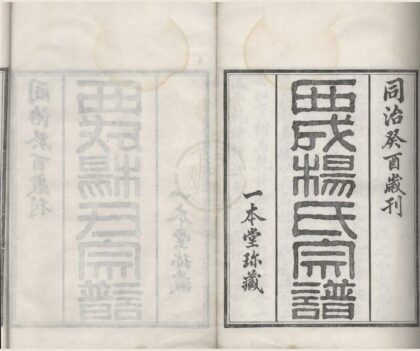 同治癸酉歲刊
西成楊氏宗譜
一本堂珍藏